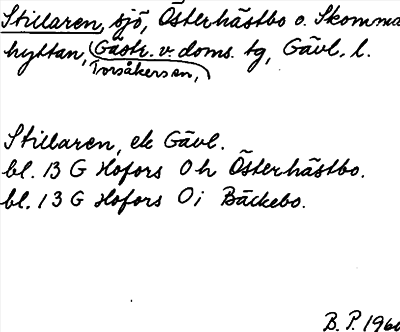 Stillaren, sjö, Österhästbo o. Skomma
hyttan, Gästr. v. doms. tg, Gävl. l.
Torsåkers sn,
Stillaren, ek Gävl.
bl. 13 G Hofors 0 h Österhästbo.
bl. 13 G Hofors 0 i Bäckebo.
B. P. 196